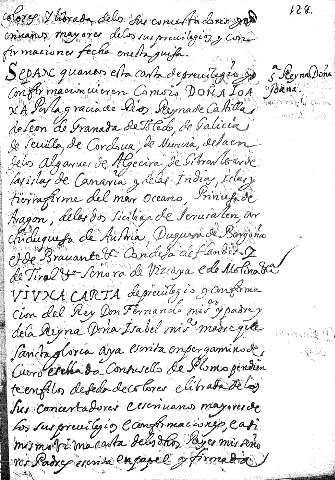 colores y librada de los sus concertadores y es
crivanos mayores de los sus previlegios y con
firmaciones fecha en esta guisa
SEPAN quantos esta carta de previlegio y
confirmacion vieren Como io DOÑA IOA
NA Por la gracia de Dios, Reyna de Castilla
de Leon de Granada de Toledo, de Galicia
de Sevilla, de Cordova, de Murcia, de Iaen
de los Algarves de Algecira, de Gibraltar de
las islas de Canaria y de las Indias, Islas y
tierra firme del mar Oceano, Princesa de
Aragon, de las dos Sicilias de Jerusalen, ar
chiduquesa de Austria, Duquesa de Borgoña
e de Bravante &c Condesa de Flandes y
de Tirol &c Señora de Vizcaya e de Molina &c
VI UNA CARTA de previlegio y confirma
cion del Rey Don Fernando mi sor y padre y
de la Reyna Doña Isabel mi sa madre q de
sancta gloria aya escrita en pergamino de
Cuero e sellada Con su sello de Plomo pendien
te en filos de seda de colores e librada de los
sus concertadores e escrivanos mayores de
los sus previlegios e confirmaciones, e asi
mismo vi una carta de los dhos Reyes mis seño
res Padres escrita en papel y firmada
128.
Sa Reyna Doña
Joana.